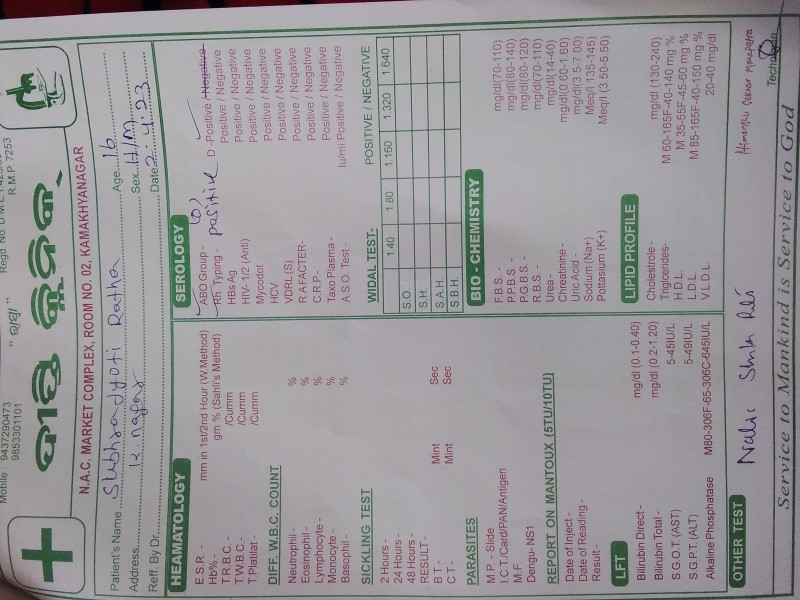 Mobile : 9437290473
9853301101
" ବାପା "
R.M.P 7253
ବାପି କ୍ଲିନିକ୍
N.A.C. MARKET COMPLEX, ROOM NO. 02, KAMAKHYANAGAR
Patient's Name Subhrajyoti Ratha Age 16
Address K. nagar Sex H/M
Reff. By Dr. Date 2.4.23
HEAMATOLOGY
E.S.R. - mm in 1st/2nd Hour (W.Method)
Hb% - gm % (Sahli's Method)
T.R.B.C. - /Cumm
T.W.B.C.- /Cumm
T.Platilat - /Cumm
DIFF. W.B.C. COUNT
Neutrophil - %
Eosinophil - %
Lymphocyte - %
Monocyte - %
Basophil - %
SICKLING TEST
2 Hours -
24 Hours -
48 Hours -
RESULT -
B T - Mint Sec
C T - Mint Sec
PARASITES
M.P. - Slide
I.C.T./Card/PAN/Antigen
M.F.
Dengu- NS1
REPORT ON MANTOUX (5TU/10TU)
Date of Inject -
Date of Reading -
Result -
LFT
Bilirubin Direct - mg/dl (0.1-0.40)
Bilirubin Total - mg/dl (0.2-1.20)
S.G.O.T. (AST) 5-45IU/L
S.G.P.T. (ALT) 5-49IU/L
Alkaline Phosphatase M80-306F-65-306C-645IU/L
SEROLOGY
ABO Group -
Rh Typing - Positive D -Positive / Negative
HBs Ag Positive / Negative
HIV- 1/2 (Anti) Positive / Negative
Mycodot Positive / Negative
HCV Positive / Negative
VDRL (S) Positive / Negative
R.A FACTER- Positive / Negative
C.R.P. - Positive / Negative
Taxo Plasma - Positive / Negative
A S O. Test - Iu/ml Positive / Negative
WIDAL TEST- POSITIVE / NEGATIVE
1.40 1.80 1.160 1.320 1.640
S.O.
S.H.
S.A.H.
S.B.H.
BIO - CHEMISTRY
F.B.S. - mg/dl(70-110)
P.P.B.S. - mg/dl(80-140)
P.G.B.S. - mg/dl(80-120)
R.B.S. - mg/dl(70-110)
Urea - mg/dl(14-40)
Chreatinine - mg/dl(0.60-1.60)
Uric Acid - mg/dl(3.5-7.00)
Sodium (Na+) Meq/l 135-145)
Pottasium (K+) Meq/l (3.50-5.50)
LIPID PROFILE
Cholestrole - mg/dl (130-240)
Triglcerides- M 60-165F-40-140 mg %
H.D.L. M 35-55F-45-60 mg %
L.D.L. M 85-165F-40-150 mg %
V.L.D.L. 20-40 mg/dl
OTHER TEST
Technician
Service to Mankind is Service to God